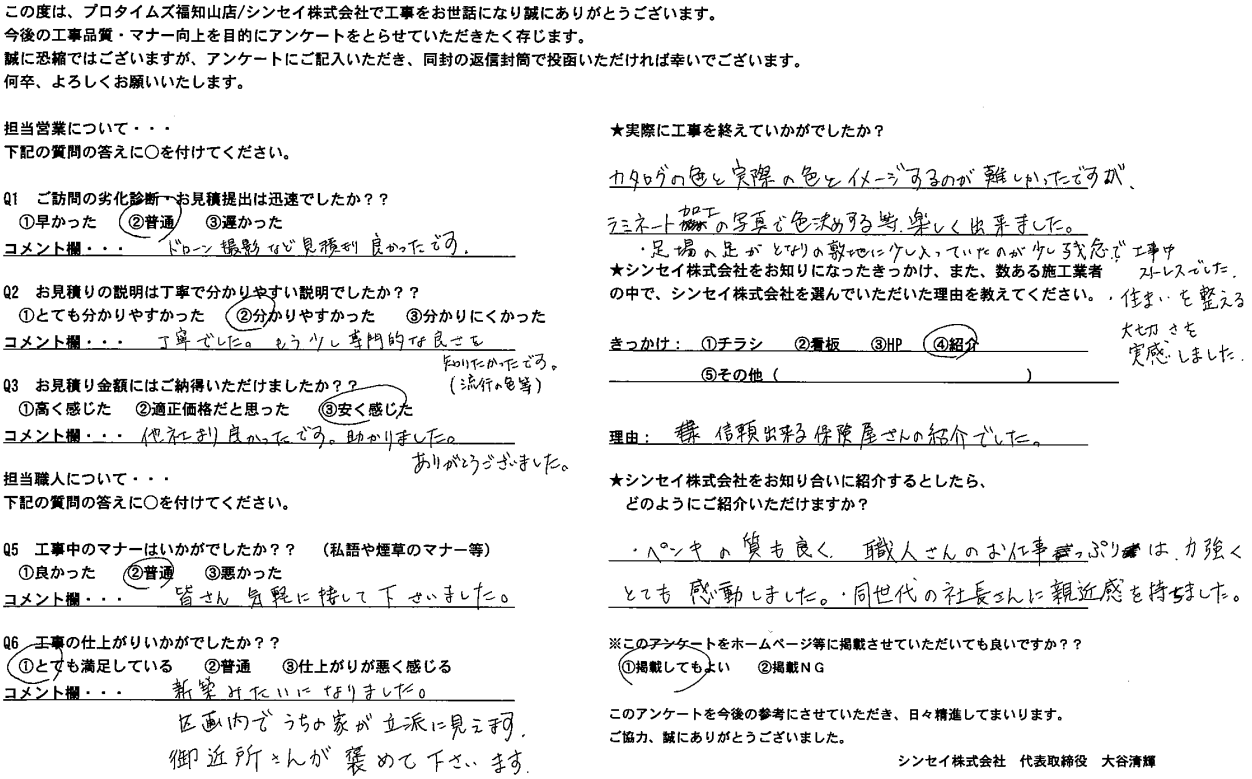 この度は、プロタイムズ福知山店/シンセイ株式会社で工事をお世話になり誠にありがとうございます。
今後の工事品質・マナー向上を目的にアンケートをとらせていただきたく存じます。
誠に恐縮ではございますが、アンケートにご記入いただき、同封の返信封筒で投函いただければ幸いでございます。
何卒、よろしくお願いいたします。
担当営業について・・・
下記の質問の答えに○を付けてください。
Q1 ご訪問の劣化診断・お見積提出は迅速でしたか？？
①早かった ②普通 ③遅かった
コメント欄・・・ ドローン撮影など見積り良かったです。
Q2 お見積りの説明は丁寧で分かりやすい説明でしたか？？
①とても分かりやすかった ②分かりやすかった ③分かりにくかった
コメント欄・・・ 丁寧でした。もう少し専門的な良さを
知りたかったです。
(流行の色等)
Q3 お見積り金額にはご納得いただけましたか？？
①高く感じた ②適正価格だと思った ③安く感じた
コメント欄・・・ 他社より良かったです。助かりました。
ありがとうございました。
担当職人について・・・
下記の質問の答えに○を付けてください。
Q5 工事中のマナーはいかがでしたか？？ （私語や煙草のマナー等）
①良かった ②普通 ③悪かった
コメント欄・・・ 皆さん気軽に接して下さいました。
Q6 工事の仕上がりいかがでしたか？？
①とても満足している ②普通 ③仕上がりが悪く感じる
コメント欄・・・ 新築みたいになりました。
区画内でうちの家が立派に見えます。
御近所さんが褒めて下さいます。
★実際に工事を終えていかがでしたか？
カタログの色と実際の色とイメージするのが難しかったですが、
ラミネート加工の写真で色決めする等、楽しく出来ました。
・足場の足がとなりの敷地に少し入っていたのが少し残念で工事中
ストレスでした。
★シンセイ株式会社をお知りになったきっかけ、また、数ある施工業者
の中で、シンセイ株式会社を選んでいただいた理由を教えてください。
・住まいを整える
大切さを
実感しました。
きっかけ： ①チラシ ②看板 ③HP ④紹介
⑤その他（ ）
理由： 信頼出来る保険屋さんの紹介でした。
★シンセイ株式会社をお知り合いに紹介するとしたら、
どのようにご紹介いただけますか？
・ペンキの質も良く、職人さんのお仕事っぷりは、力強く
とても感動しました。・同世代の社長さんに親近感を持ちました。
※このアンケートをホームページ等に掲載させていただいても良いですか？？
①掲載してもよい ②掲載ＮＧ
このアンケートを今後の参考にさせていただき、日々精進してまいります。
ご協力、誠にありがとうございました。
シンセイ株式会社 代表取締役 大谷清輝